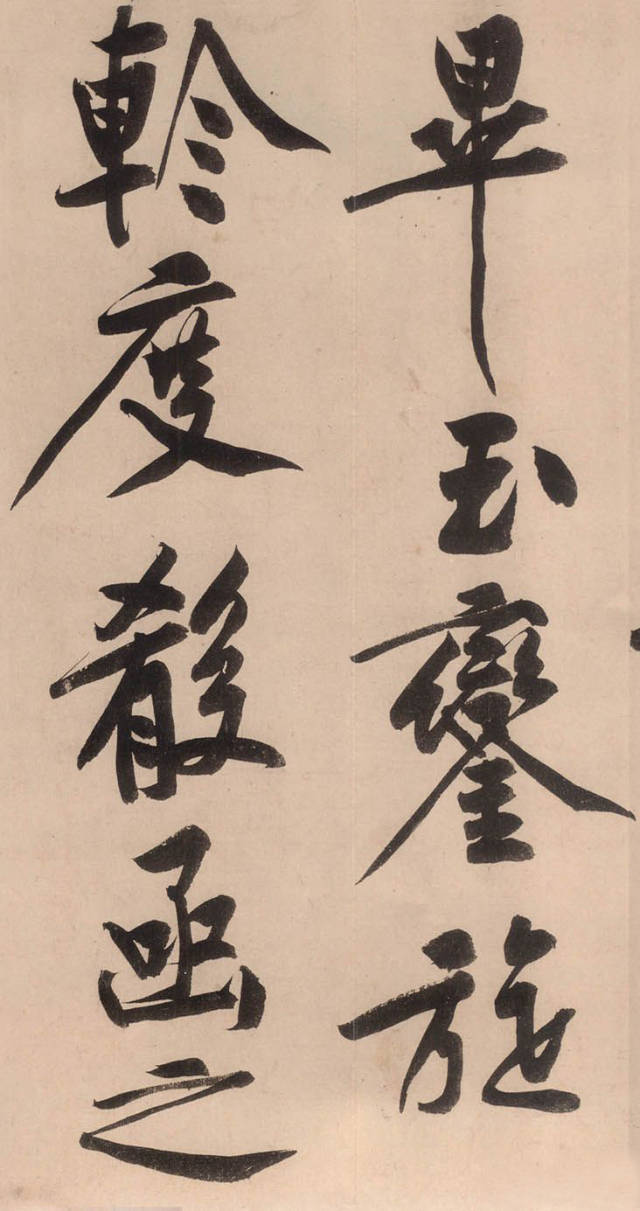 畢玉鑾旋
軫度殽函之